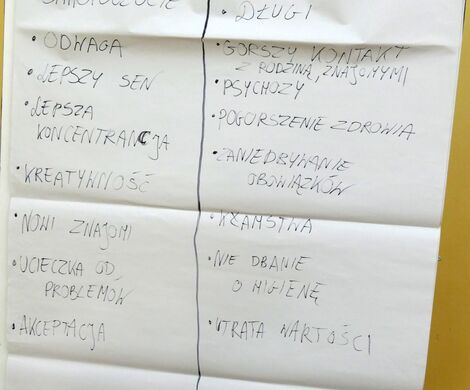 SAMOPOCZUCIE
• ODWAGA
• LEPSZY SEN
• LEPSZA
KONCENTRACJA
• KREATYWNOŚĆ
• NOWI ZNAJOMI
• UCIECZKA OD
PROBLEMÓW
• AKCEPTACJA
• DŁUGI
• GORSZY KONTAKT
Z RODZINĄ, ZNAJOMYMI
• PSYCHOZY
• POGORSZENIE ZDROWIA
• ZANIEDBYWANIE
OBOWIĄZKÓW
• KŁAMSTWA
• NIE DBANIE
O HIGIENĘ
• UTRATA WARTOŚCI